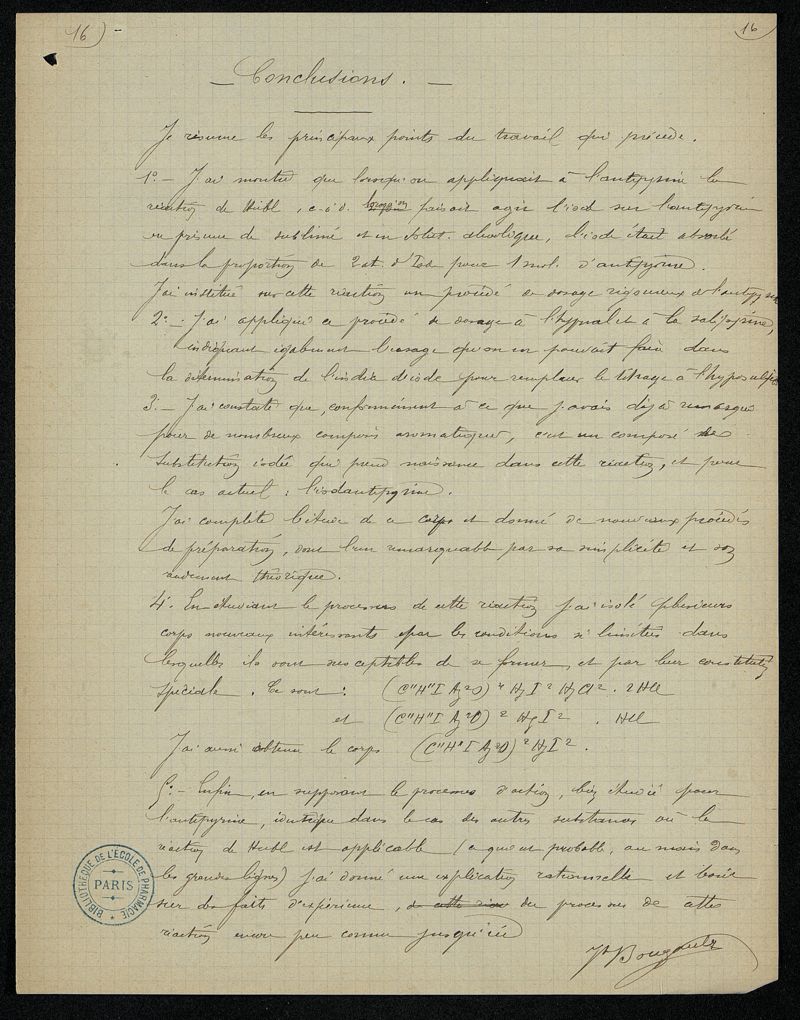 16) -
16
— Conclusions. —
Je résume les principaux points du travail qui précède.
1º.- J'ai montré que lorsqu'on appliquait à l'antipyrine la
réaction de Hübl, c-à-d. faisait agir l'iode sur l'antipyrine
en présence de sublimé et en solut. alcoolique, l'iode était absorbé
dans la proportion de 2 at. d'Iode pour 1 mol. d'antipyrine.
J'ai institué sur cette réaction un procédé de dosage rigoureux de l'antipyrine
2º.- J'ai appliqué ce procédé de dosage à l'hypnal et à la salipyrine,
indiquant également l'usage qu'on en pouvait faire dans
la détermination de l'indice d'iode pour remplacer le titrage à l'hyposulfite
3º.- J'ai constaté que, conformément à ce que j'avais déjà remarqué
pour de nombreux composés aromatiques, c'est un composé de
substitution iodée qui prend naissance dans cette réaction, et pour
le cas actuel : l'iodantipyrine.
J'ai complété l'étude de ce corps et donné de nouveaux procédés
de préparation, dont l'un remarquable par sa simplicité et son
rendement théorique.
4º. En étudiant le processus de cette réaction j'ai isolé plusieurs
corps nouveaux intéressants par les conditions si limitées dans
lesquelles ils sont susceptibles de se former, et par leur constitution
spéciale. Ce sont : (C"H"I Az²O)⁴ Hg I² Hg Cl². 2 HCl
et (C"H"I Az²O)² Hg I² . HCl
J'ai aussi obtenu le corps (C"H"I Az²O)² Hg I².
5º.- Enfin, en supposant le processus d'action, bien étudié pour
l'antipyrine, identique dans le cas des autres substances où la
réaction de Hübl est applicable (ce qui est probable, au moins dans
les grandes lignes) j'ai donné une explication rationnelle et basée
sur des faits d'expérience, de cette réac du processus de cette
réaction encore peu connu jusqu'ici
Jh Bougault
BIBLIOTHÈQUE DE L'ÉCOLE DE PHARMACIE
PARIS